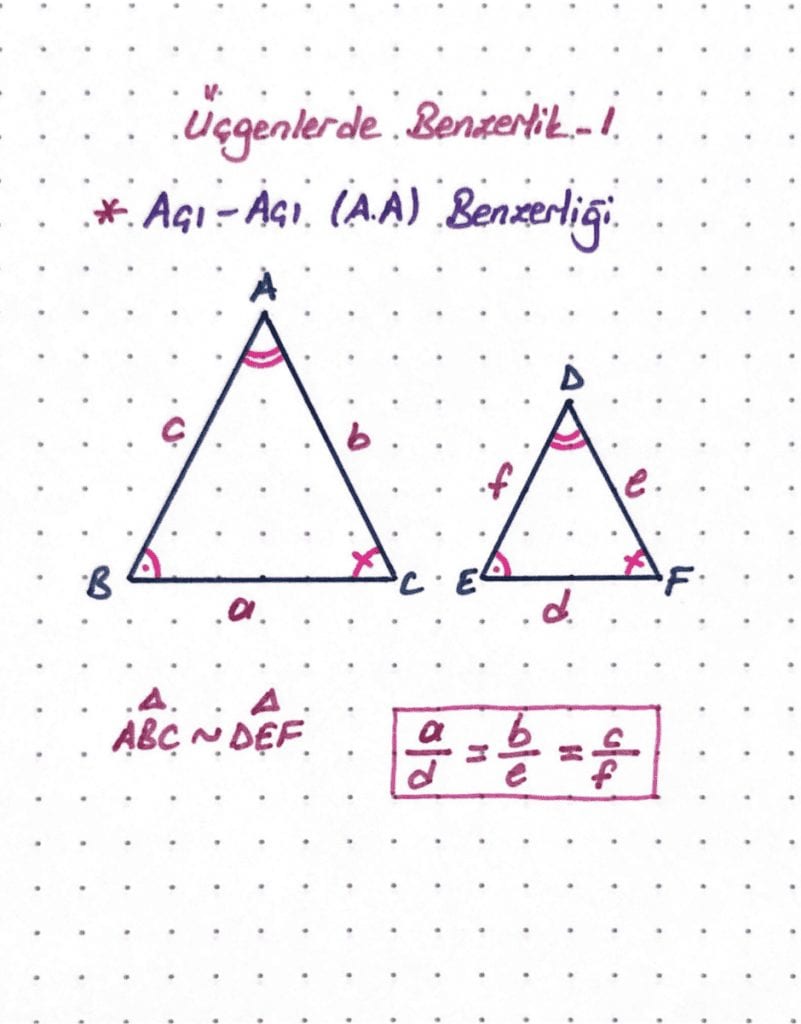 Üçgenlerde Benzerlik-1
* Açı-Açı (A.A) Benzerliği
A
D
c
b
f
e
B
C
E
F
a
d
ABC ~ DEF
a/d = b/e = c/f